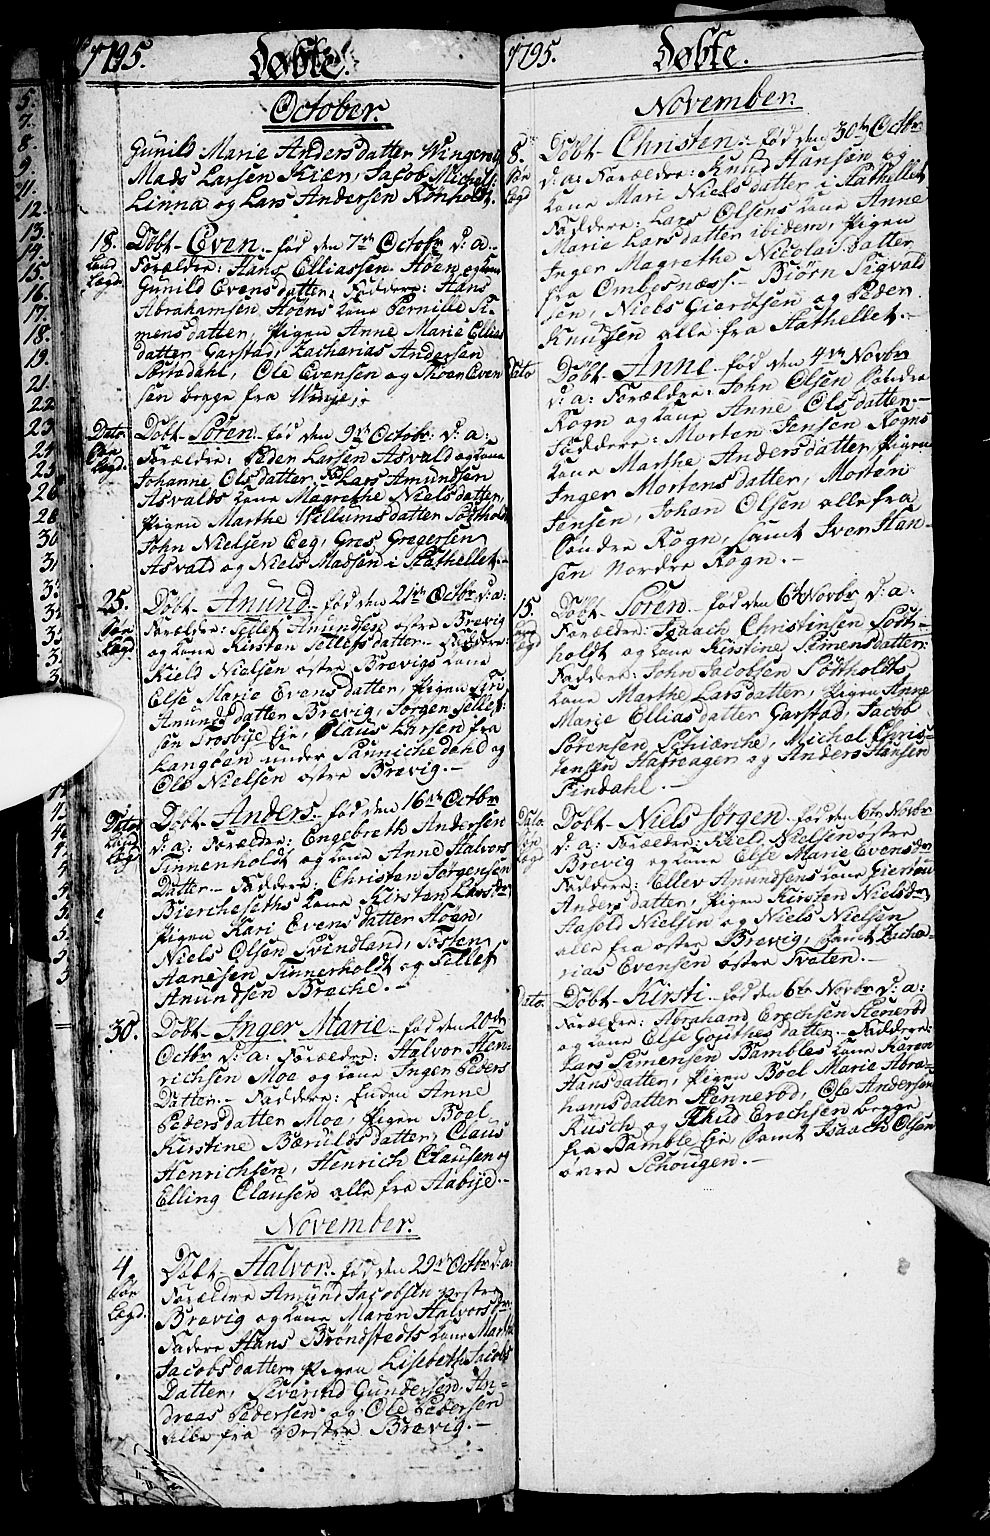 1795.
Døbte.
October.
Gunild Marie Andersdatter Wingereij
Mads Larsen Kiær, Jacob Michels:
Linna og Lars Andersen Rønholdt.
18.
Land
Lægd
Døbt Even fød den 7de Octobr d: a:
Forældre: Hans Elliassen Høen og kone
Gunild Evensdatter; Faddere: Hans
Abrahamsen Høens kone Pernille Si-
mensdatter, Pigen Anne Marie Ellias
datter Garstad, Zacharias Andersen
Ole Evensen og Thoer Even
sen begge fra
Dato
Søe
Lægd.
Døbt Søren fød den 9de Octobr: d: a:
Forældre: Peder Larsen Asvald og kone
Johanne Olsdatter; Fad: Lars Amundsen
Asvalds kone Magrethe Nielsdatter,
Pigen Marthe Willumsdatter Søtholdt
John Nielsen Eeg, Gres Gregersen
Asvald og Niels Madsen i Stathellet.
25.
Søe
Lægd.
Døbt Anund fød den 21de Octbr: d: a:
Forældre: Tellef Amundsen østre Brevig
og kone Kirsten Tellefsdatter. Faddere:
Kield Nielsen østre Brevigs kone
Else Marie Evensdatter, Pigen Siri
Anundsdatter Brevig, Jørgen Tellef-
sen Trosbye Eje, Claus Larsen fra
Langøen under Sannichedahl og
Ole Nielsen østre Brevig.
Dato
Land
Lægd
Døbt Anders fød den 16de Octbr
d: a: Forældre: Engebreth Andersen
Tinnenholdt og kone Anne Halvors
Datter. Faddere: Christen Jørgensen
Bierchesæths kone Kirsten Larsdr,
Pigen Kari Evensdatter Høen,
Niels Olsen Svindland, Tosten
Aanesen Tinnerholdt og Tellef
Anundsen Bræche.
30.
Døbt Inger Marie fød den 20de
Octbr d: a: Forældre: Halvor Hen-
richsen Moe og kone Inger Peders
Datter. Faddere: Enden Anne
Pedersdatter Moe, Pigen Boel
Kirstine Bæruldsdatter, Claus
Henrichsen, Henrich Clausen og
Elling Clausen alle fra Aabye.
November.
4
Søe
Lægd.
Døbt Halvor fød den 29de Octbr d: a:
Forældre Amund Jacobsen vestre
Brevig og kone Maren Halvorsdr.
Fadere Hans Brøndstedts kone Marthe
Jacobsdatter Pigen Lisebeth Jacobs
Datter, Severind Gundersen, An-
dreas Pedersen og Ole Pedersen
alle fra Vestre Brevig.
1795.
Døbte.
November.
8.
Søe
Lægd
Døbt Christen fød den 30te Octbr
d: a: Forældre: Knud Hansen og
kone Mari Nielsdatter i Stathellet
Faddere: Lars Olsens kone Anne
Marie Larsdatter ibidem, Pigen
Inger Magrethe Nicolaidatter
fra Ombesnæs. Biørn Sigvald
sen, Niels Giertsen og Peder
Knudsen alle fra Stathellet.
Dato
Døbt Anne fød den 4de Novbr
d: a: Forældre: John Olsen Søndre
Rogn og kone Anne Olsdatter.
Faddere: Morten Jensen Rogns
kone Marthe Andersdatter, Pigen
Inger Mortensdatter, Morten
Jensen, Johan Olsen alle fra
Søndre Rogn, samt Iver Han-
sen Nordre Rogn.
15.
Land
Lægd
Døbt Søren fød den 6te Novbr d: a:
Forældre: Isaach Christinsen Søt-
holdt og kone Kirstine Simensdatter.
Faddere: John Jacobsen Søtholdts
kone Marthe Larsdatter, Pigen Anne
Marie Elliasdatter Garstad, Jacob
Sørensen Schiærche, Michel Chris-
tensen Hafvager og Anders Hansen
Findahl.
Dato
Søe
Lægd
Døbt Niels Jørgen fød den 6te Novbr
d: a: Forældre: Kield Nielsen østre
Brevig og kone Else Marie Evensdr.
Faddere: Ellev Anundsens kone Giertru
Andersdatter, Pigen Kirsten Nielsdr,
Aasold Nielsen og Niels Nielsen
alle fra østre Brevig, samt Zacha-
rias Evensen østre Tvaten.
Dato
Døbt Kirsti fød den 6te Novbr d: a:
Forældre: Abraham Erechsen Stenerød
og kone Else Gojethesdatter. Faddere:
Lars Simensen Bambles kone Karen
Hansdatter, Pigen Boel Marie Abra-
hamsdatter Stennerød, Ole Andersen
Rusch og Schuld Erechsen begge
fra Bamble Eje samt Isaach Olsen
øvre Schougen.